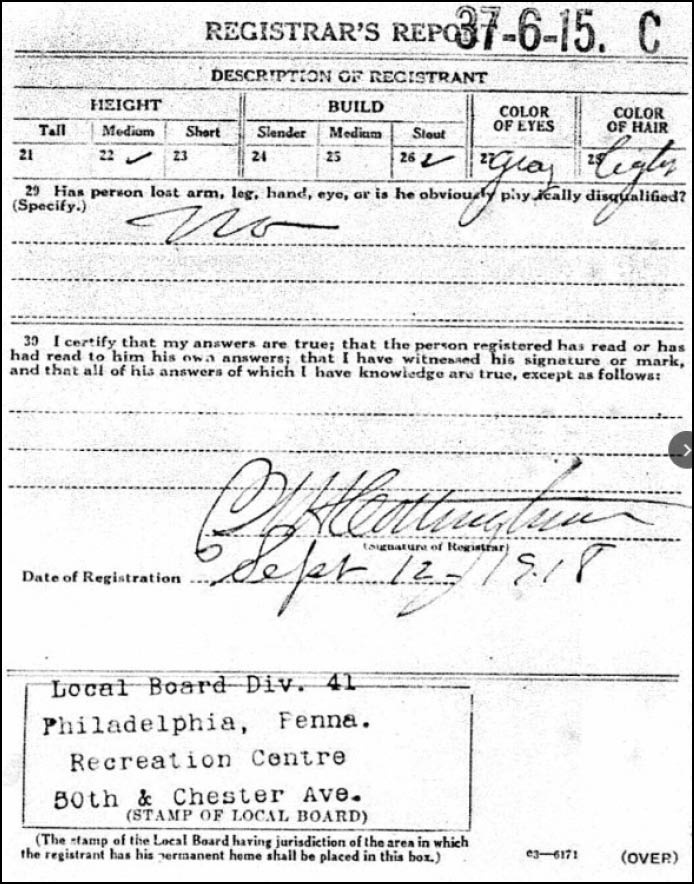 REGISTRAR'S REPORT 37-6-15. C
DESCRIPTION OF REGISTRANT
HEIGHT BUILD COLOR OF EYES COLOR OF HAIR
Tall Medium Short Slender Medium Stout
21 22 ✓ 23 24 25 26 ✓ 27 Gray 28 Light
29 Has person lost arm, leg, hand, eye, or is he obviously physically disqualified?
(Specify.) No
30 I certify that my answers are true; that the person registered has read or has
had read to him his own answers; that I have witnessed his signature or mark,
and that all of his answers of which I have knowledge are true, except as follows:
(Signature of Registrar)
Date of Registration Sept 12 - 1918
Local Board Div. 41
Philadelphia, Penna.
Recreation Centre
50th & Chester Ave.
(STAMP OF LOCAL BOARD)
(The stamp of the Local Board having jurisdiction of the area in which
the registrant has his permanent home shall be placed in this box.)
c3—6171 (OVER)